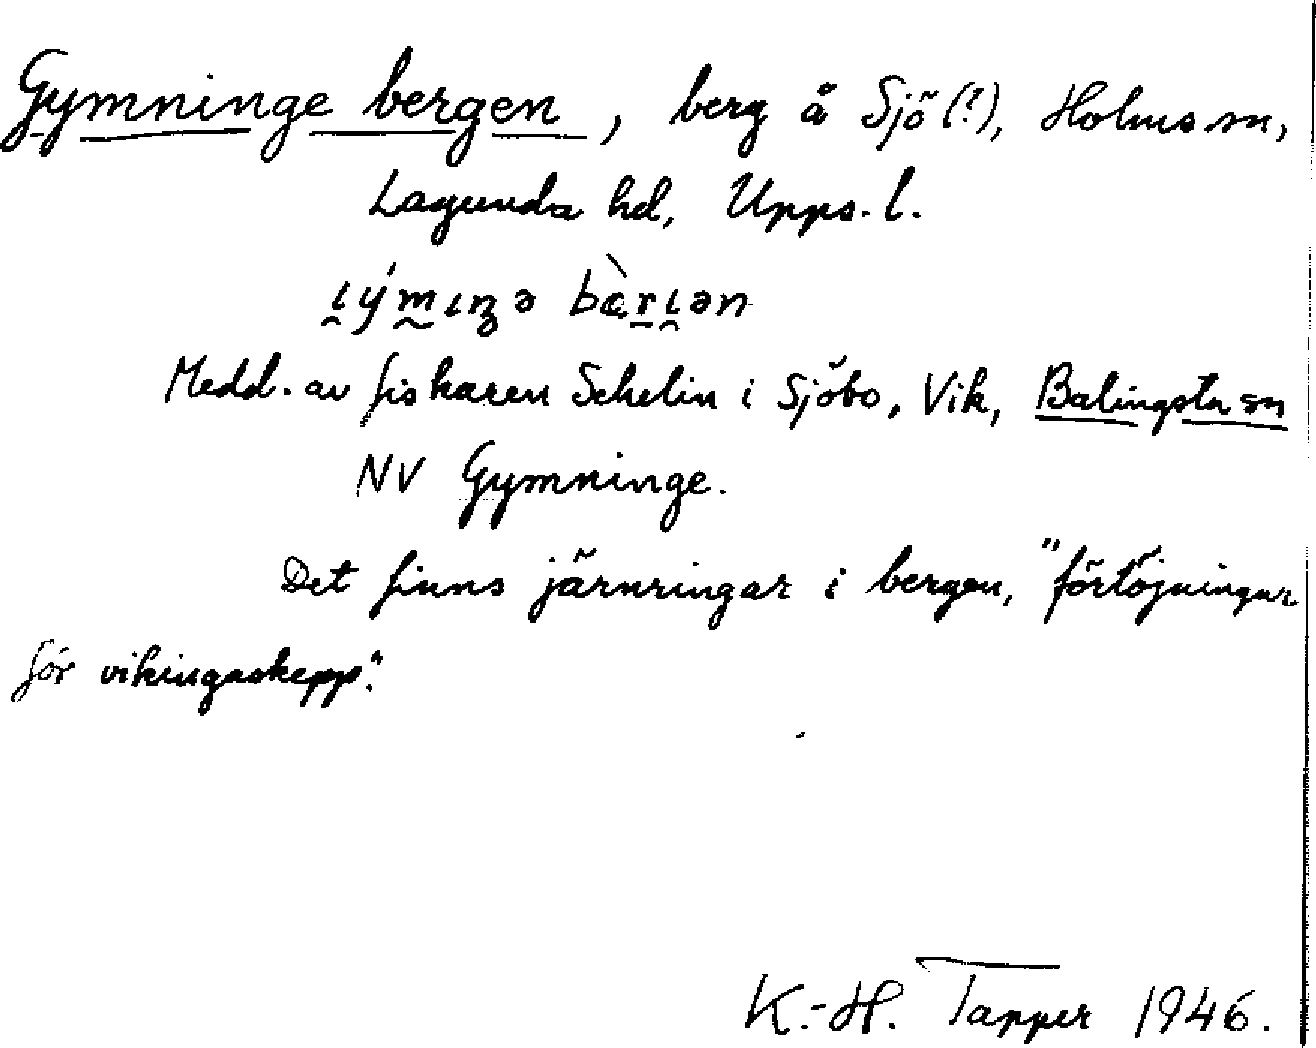 Gymninge bergen, berg å Sjö (!), Holms sn,
Lagunda hd, Upps. l.
ɩ̯ým̰ɩŋə bæ̀rɩ̯ən
Medd. av fiskaren Schelin i Sjöbo, Vik, Balingsta sn
NV Gymninge.
Det finns järnringar i bergen, "förtöjningar
för vikingaskepp".
K.-H. Tapper 1946.